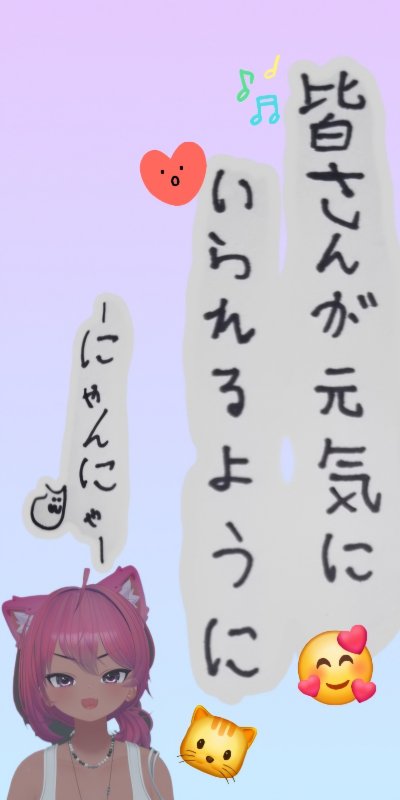 皆さんが元気に
いられるように
ーにゃんにゃー